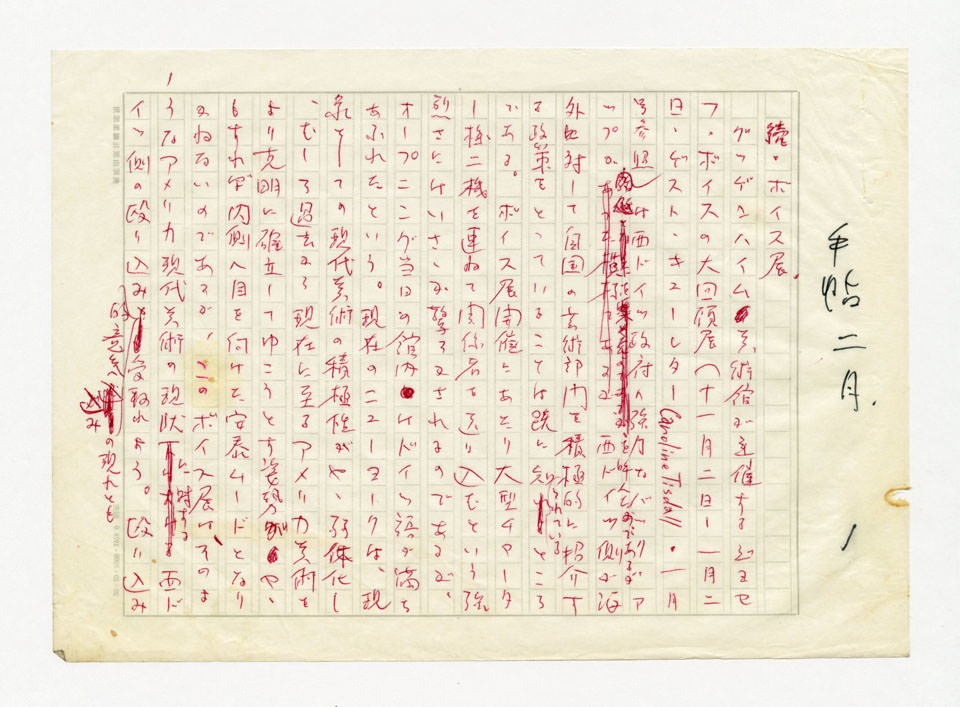 手帖二月.
1
続・ボイス展.
グッゲンハイム美術館が主催するジョセ
フ・ボイスの大回顧展(十一月二日ー一月二
日、ゲスト・キューレター Caroline Tisdall ・一月
号参照)は西ドイツ政府の強力なバックアッ
プが
西ドイツ側が海
外に対して自国の芸術部門を積極的に招介す
る政策をとっていることは既に知られているところ
である。ボイス展開催にあたり大型チャータ
ー機二機を連ねて関係者を送り込むという強
烈さにはいささか驚ろかされるのであるが、
オープニング当日の館内はドイツ語が満ち
あふれたという。現在のニューヨークは、現
象としての現代美術の積極性がやゝ弱体化し
、むしろ過去から現在に至るアメリカ美術を
より克明に確立してゆこうとす姿勢が、や、
もすれば内側へ目を向けた安泰ムードとなり
かねないのであるが、このボイス展はそのよ
うなアメリカ現代美術の現状に対する西ド
イツ側の殴り込み的意気込みの現れとも受取れよう。殴り込み